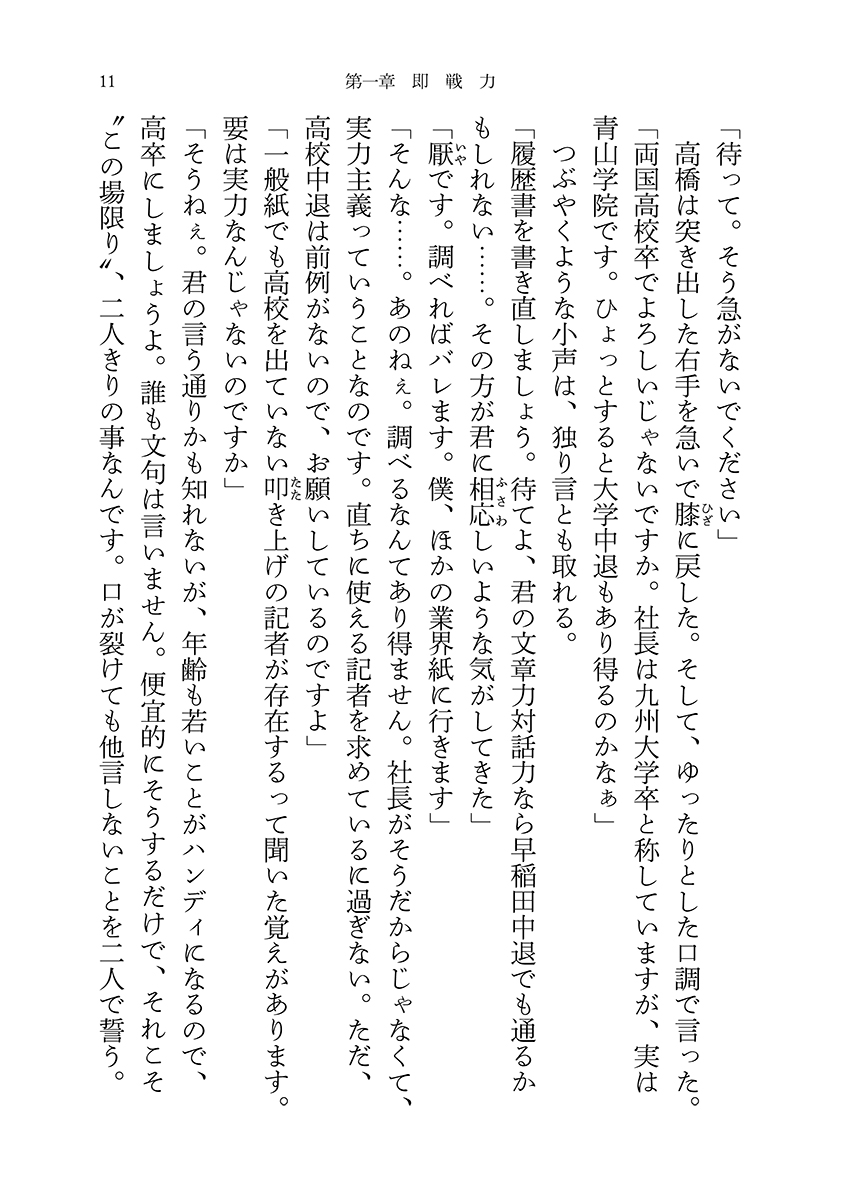 11
第一章 即 戦 力
「待って。そう急がないでください」
高橋は突き出した右手を急いで膝に戻した。そして、ゆったりとした口調で言った。
ひざ
「両国高校卒でよろしいじゃないですか。社長は九州大学卒と称していますが、実は
青山学院です。ひょっとすると大学中退もあり得るのかなぁ」
つぶやくような小声は、独り言とも取れる。
「履歴書を書き直しましょう。待てよ、君の文章力対話力なら早稲田中退でも通るか
もしれない……。その方が君に相応しいような気がしてきた」
ふさわ
「厭です。調べればバレます。僕、ほかの業界紙に行きます」
いや
「そんな……。あのねぇ。調べるなんてあり得ません。社長がそうだからじゃなくて、
実力主義っていうことなのです。直ちに使える記者を求めているに過ぎない。ただ、
高校中退は前例がないので、お願いしているのですよ」
「一般紙でも高校を出ていない叩き上げの記者が存在するって聞いた覚えがあります。
たた
要は実力なんじゃないのですか」
「そうねぇ。君の言う通りかも知れないが、年齢も若いことがハンディになるので、
高卒にしましょうよ。誰も文句は言いません。便宜的にそうするだけで、それこそ
〝この場限り〟、二人きりの事なんです。口が裂けても他言しないことを二人で誓う。